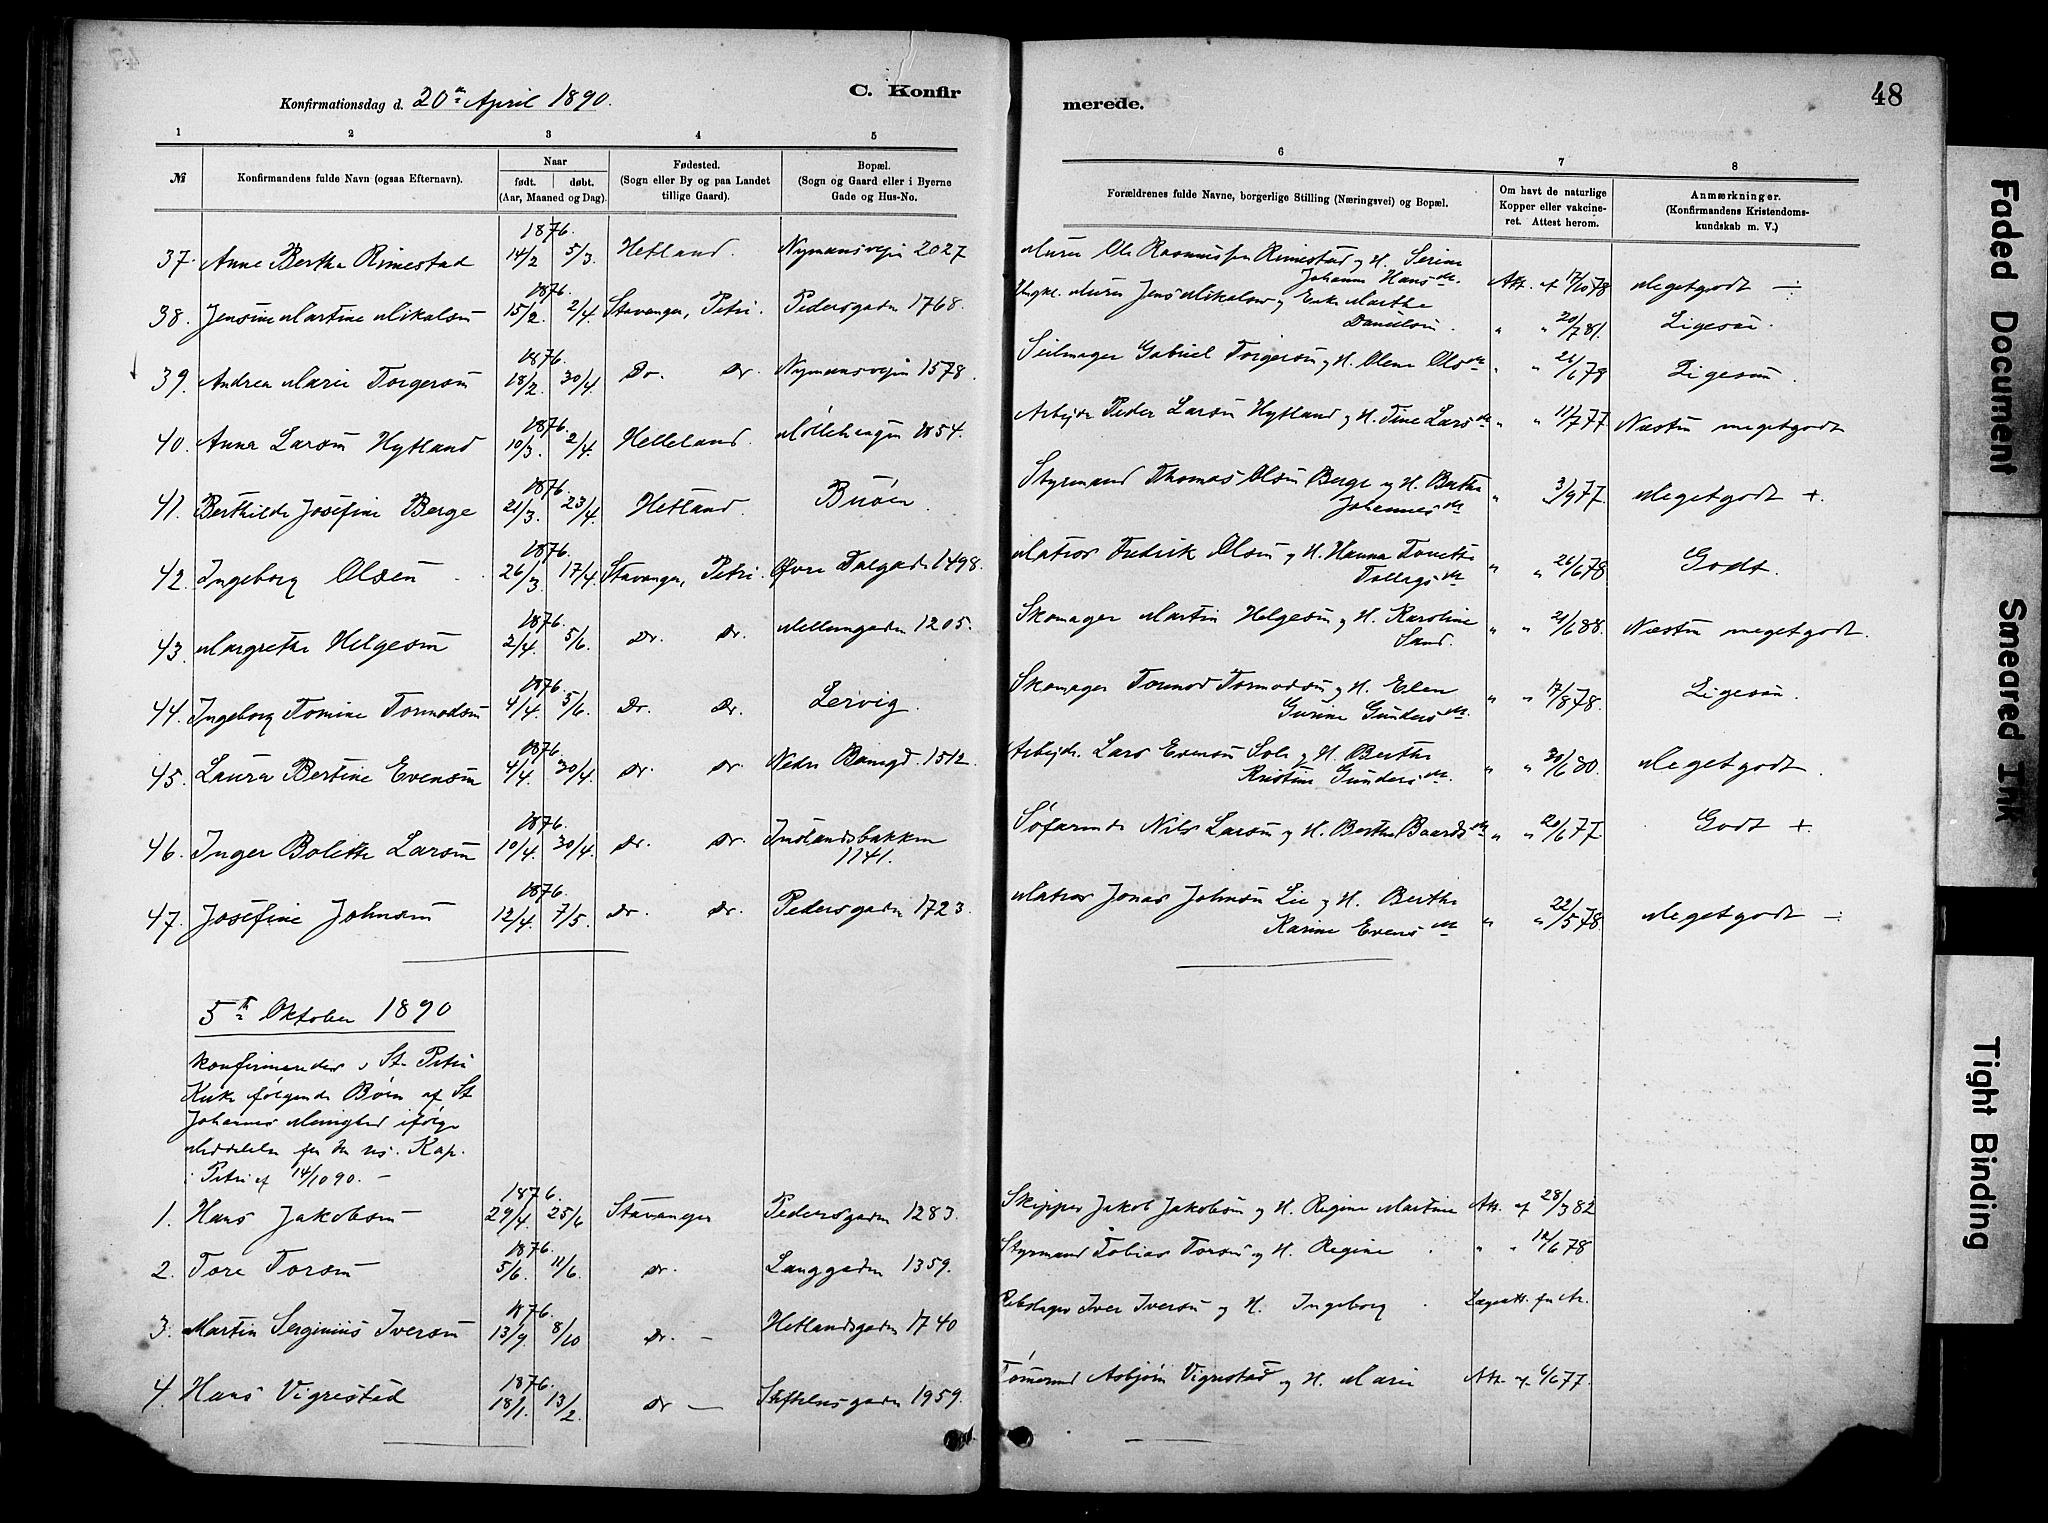 Konfirmationsdag d. 20de April 1890.
C. Konfir
merede.
48
1 2 3 4 5 6 7 8
№ Konfirmandens fulde Navn (ogsaa Efternavn).
Naar født. døbt. (Aar, Maaned og Dag).
Fødested. (Sogn eller By og paa Landet tillige Gaard).
Bopæl. (Sogn og Gaard eller i Byerne Gade og Hus-No.
Forældrenes fulde Navne, borgerlige Stilling (Næringsvei) og Bopæl.
Om havt de naturlige Kopper eller vakcineret. Attest herom.
Anmærkninger. (Konfirmandens Kristendomskundskab m. V.)
37. Anne Bertha Rimestad 1876. 14/2 5/3. Hetland. Nymansvejen 2027 Murer Ole Rasmussen Rimestad og H. Serine Johanne Hansdr. Att. af 17/10 78 Megetgodt ÷
38. Jensine Martine Mikalsen 1876. 15/2. 2/4. Stavanger, Petri. Pedersgaden 1768. Ungkl. Murer Jens Mikalsen og Enke Marthe Danielsen. " " 20/7 81. Ligesaa.
39. Andrea Marie Torgersen 1876. 18/2. 30/4. Do. Do. Nymansvejen 1578. Seilmager Gabriel Torgersen og H. Olene Olsdr " " 21/6 78 Ligesaa.
40. Anna Larsen Hytland 1876. 10/3. 2/4. Helleland. Møllehaugen 1854. Arbejder Peder Larsen Hytland og H. Tine Larsdr " " 11/7 77 Næsten megetgodt
41. Berthilde Josefine Berge 1876. 21/3. 23/4. Hetland. Buøen. Styrmand Thomas Olsen Berge og H. Berthe Johannesdr " 3/9 77. Megetgodt +.
42. Ingeborg Olsen 1876. 26/3 17/4. Stavanger, Petri. Øvre Dalgade 1498. Matros Fredrik Olsen og H. Hanna Tonette Tollagsdr " " 26/6 78 Godt.
43. Margrethe Helgesen 1876. 2/4. 5/6. Do. Do. Mellemgaden 1205. Skomager Martin Helgesen og H. Karoline Sand. " " 21/6 88. Næsten megetgodt.
44. Ingeborg Tomine Tormodsen 1876. 4/4. 5/6. Do. Do. Lervig. Skomager Tormod Tormodsen og H. Elen Gurine Gundersdr. " " 17/8 78. Ligesaa.
45. Laura Bertine Evensen 1876. 4/4. 30/4. Do. Do. Nedre Banegd. 1512. Arbejdr. Lars Evensen Sole og H. Berthe Kristine Gundersdr. " " 30/6 80. Megetgodt.
46. Inger Bolette Larsen 1876. 10/4. 30/4. Do. Do. Indlandsbakken 1141. Søfarende Nils Larsen og H. Berthe Baardsdr " " 20/6 77 Godt +.
47. Josefine Johnsen 1876. 12/4. 7/5. Do. Do. Pedersgaden 1723. Matros Jonas Johnsen Lie og H. Berthe Karine Evensdr " " 22/5 78. Megetgodt ÷
5te Oktober 1890
konfirmeredes i St. Petri
Kirke følgende Børn af St
Johannes Menighed ifølge
Meddelelse fra den res. Kap.
i Petri af 14/10 90. —
1. Hans Jakobsen 1876. 29/4. 25/6 Stavanger Pedersgaden 1283. Skipper Jakob Jakobsen og H. Regine Martine Att. af 28/3 82
2. Tore Torsen 1876. 5/6. 11/6. do. Langgaden 1359. Styrmand Tobias Torsen og H. Regine " " 12/6 78
3. Martin Serginius Iversen 1876. 13/9. 8/10 do. — Hetlandsgaden 1740 Rebslager Iver Iversen og H. Ingeborg . Lægeatt. fra Ar.
4. Hans Vigrestad 1876. 18/1. 13/2. do — Stiftelsesgaden 1959. Tømmermd Asbjørn Vigrestad og H. Marie Att. af 6/6 77.
Faded Document
Smeared Ink
Tight Binding